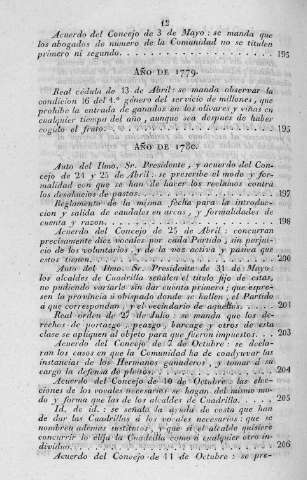 12
Acuerdo del Concejo de 3 de Mayo: se manda que
los abogados de numero de la Comunidad no se titulen
primero ni segundo. . . . . . . . . . . . . . . . 195
AÑO DE 1779.
Real cédula de 13 de Abril: se manda observar la
condicion 16 del 4.º género del servicio de millones, que
prohibe la entrada de ganados en los olivares y viñas en
cualquier tiempo del año, aunque sea despues de haber
cogido el fruto. . . . . . . . . . . . . . . . 195
AÑO DE 1780.
Auto del Ilmo. Sr. Presidente, y acuerdo del Con-
cejo de 24 y 25 de Abril: se prescribe el modo y for-
malidad con que se han de hacer los reclamos contra
los desahucios de pastos. . . . . . . . . . . . . . 197
Reglamento de la misma fecha para la introduc-
cion y salida de caudales en arcas, y formalidades de
cuenta y razon. . . . . . . . . . . . . . . . 198
Acuerdo del Concejo de 25 de Abril: concurran
precisamente diez vocales por cada Partido, sin perjui-
cio de los voluntarios, y de la voz activa y pasiva que
estos tienen. . . . . . . . . . . . . . . . 200
Auto del Ilmo. Sr. Presidente de 31 de Mayo:
los alcaldes de Cuadrilla señalen el título fijo de estas,
no pudiendo variarle sin dar cuenta primero; que expre-
sen la provincia ú obispado donde se hallen, el Partido
á que corresponden, y el vecindario de ganados. . . . 201
Real orden de 27 de Julio: se manda que los de-
rechos de portazgo, peazgo, barcage y otros de esta
clase se apliquen al objeto para que fueron impuestos. . 203
Acuerdo del Concejo de 2 de Octubre: se decla-
ran los casos en que la Comunidad ha de coadyuvar las
instancias de los Hermanos ganaderos, y tomar á su
cargo la defensa de pleitos. . . . . . . . . . . . 204
Acuerdo del Concejo de 10 de Octubre: las elec-
ciones de los vocales necesarios se hagan del mismo mo-
do y forma que las de los alcaldes de Cuadrilla. . . . 205
Id. de id.: se señala la ayuda de costa que han
de dar las Cuadrillas á los vocales necesarios: que se
nombren ademas institutos, y que si el alcalde quisiere
concurrir lo elija la Cuadrilla como á cualquier otro in-
dividuo. . . . . . . . . . . . . . . . 206
Acuerdo del Concejo de 11 de Octubre: se pre-